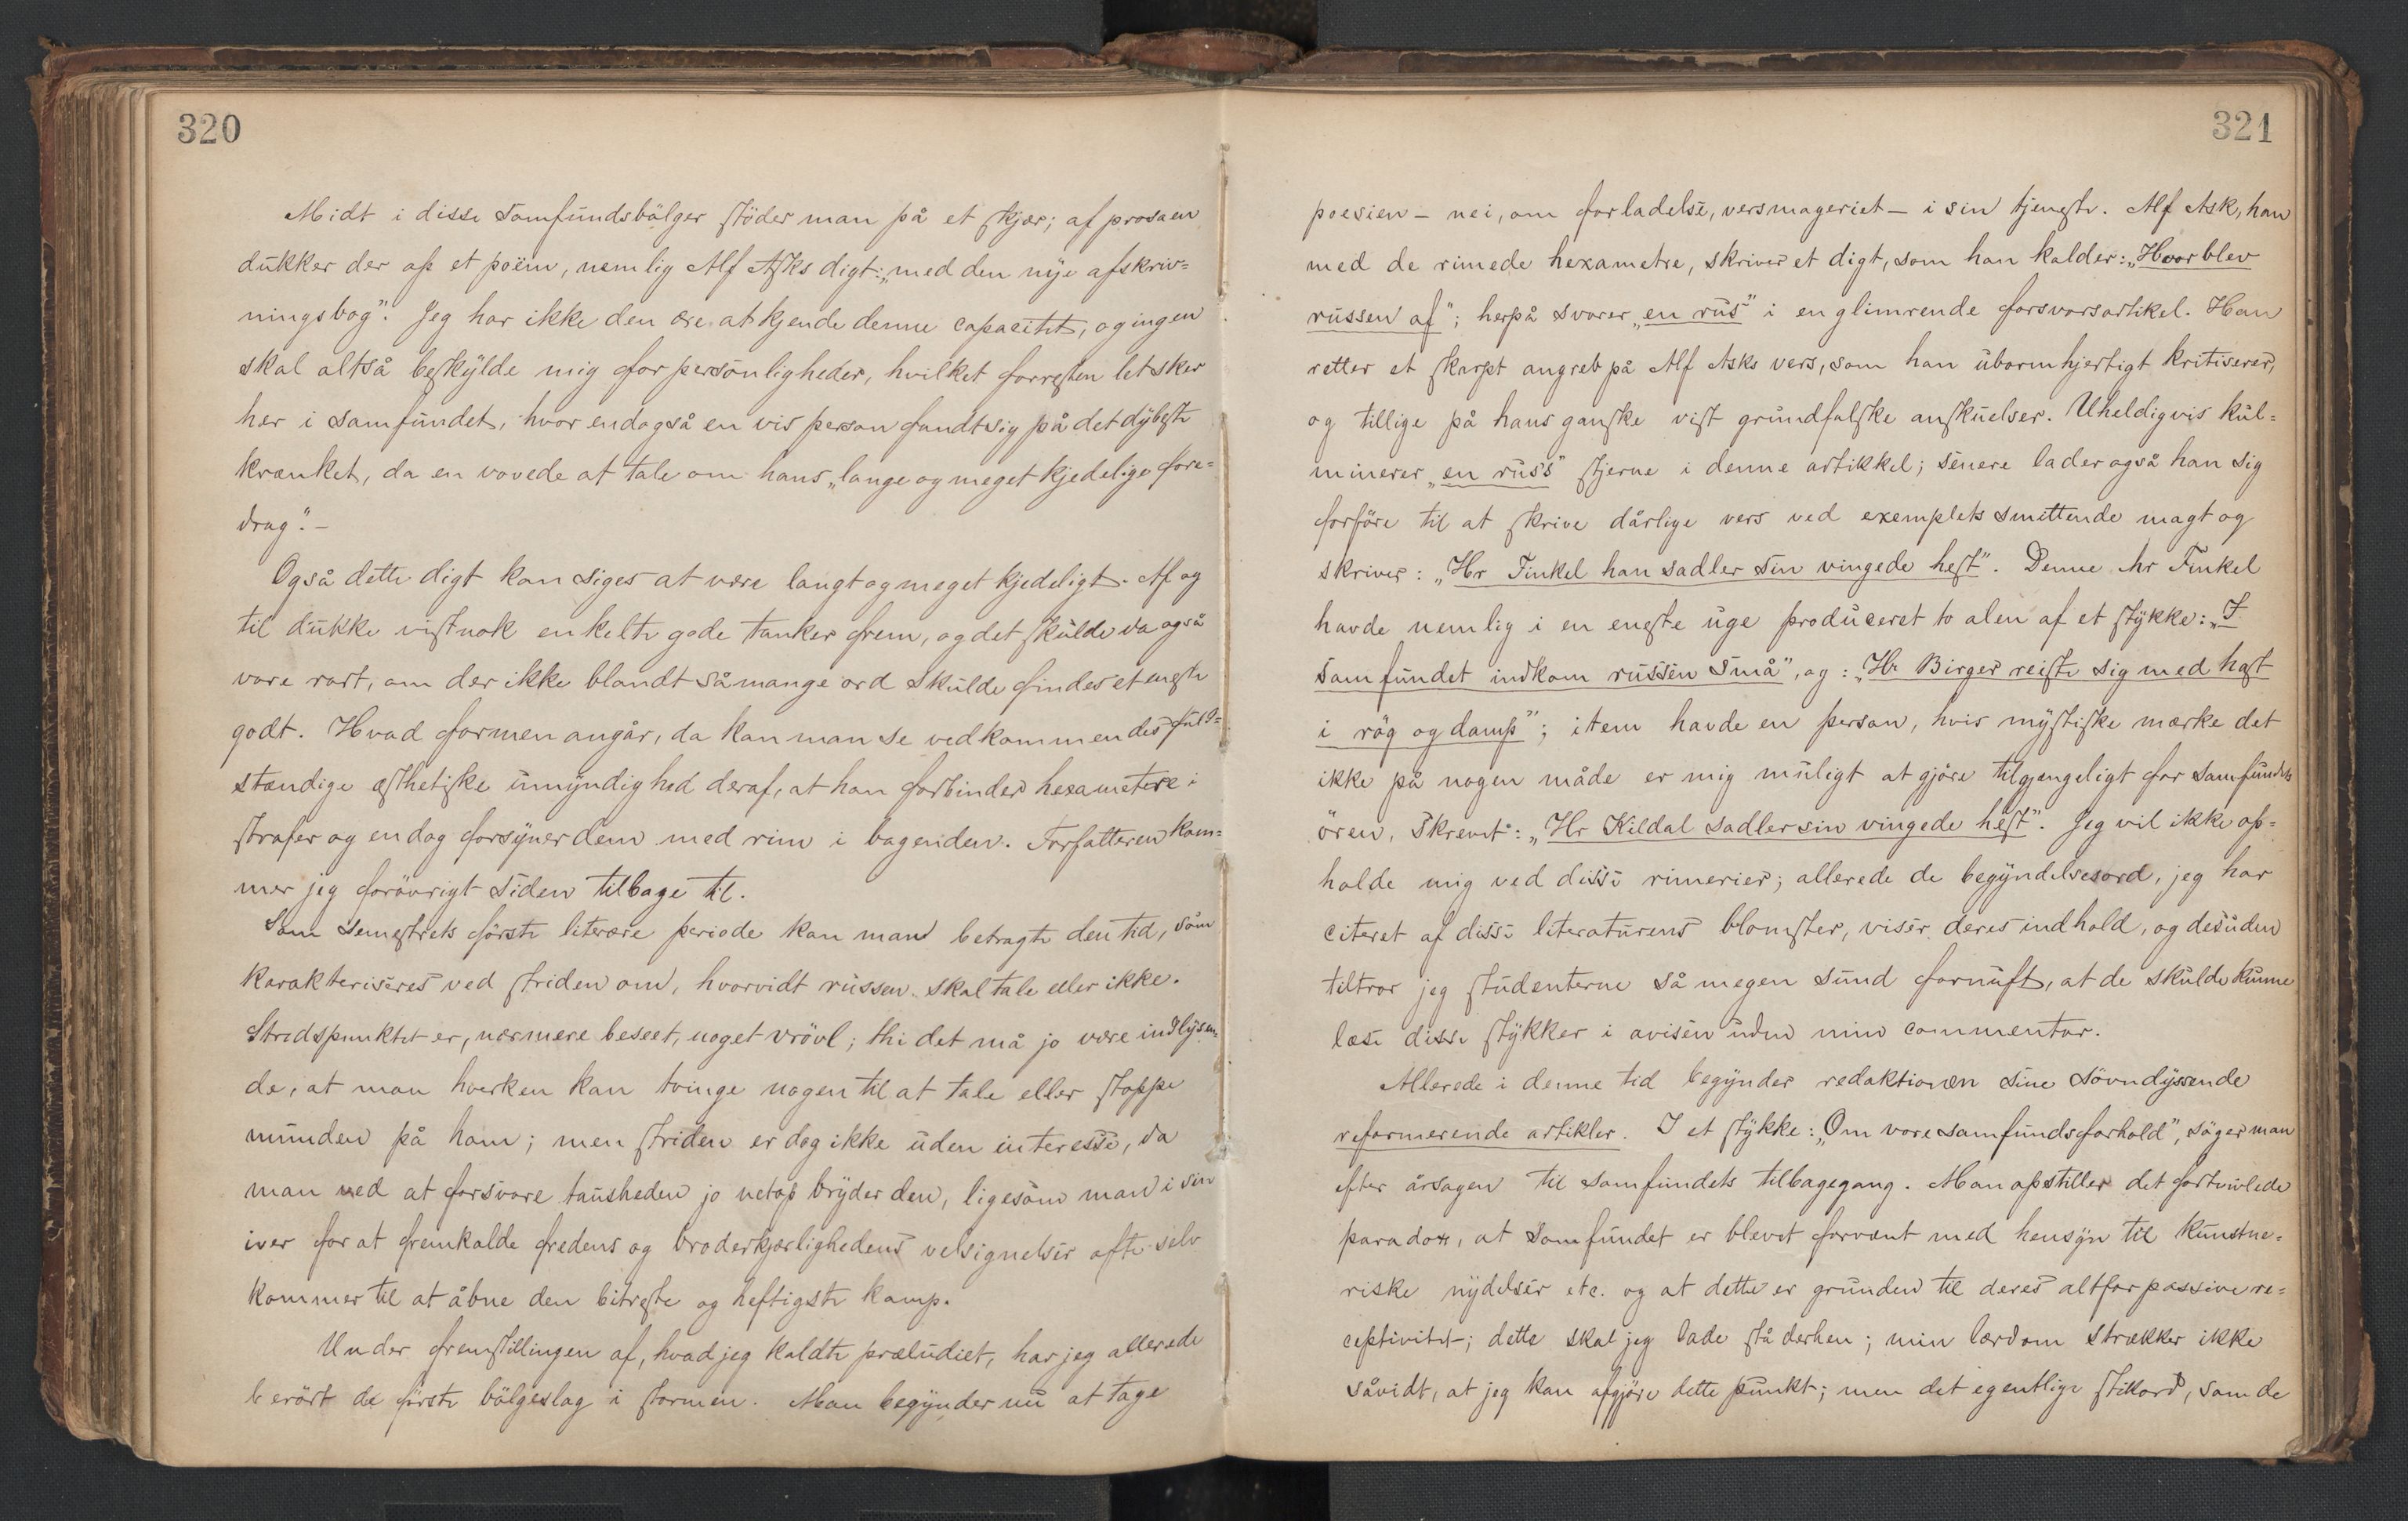 320
Midt i disse Samfundsbölger stöder man på et skjær; af prosaen
dukker der op et poëm, nemlig Alf Asks digt: „med den nye afskriv=
ningsbog". Jeg har ikke den ære at kjende denne capacitet, og ingen
skal altså beskylde mig for personligheder, hvilket forresten let sker
her i samfundet, hvor endogså en vis person fandt sig på det dybeste
krænket, da en vovede at tale om hans „lange og meget kjedelige fore=
drag". –
Også dette digt kan siges at være langt og meget kjedeligt. Af og
til dukke vistnok enkelte gode tanker frem, og det skulde da også
være rart, om der ikke blandt så mange ord skulde findes et eneste
godt. Hvad formen angår, da kan man se vedkommendes fuld=
stændige æsthetiske umyndighed deraf, at han forbinder hexametere i
strofer og endog forsyner dem med rim i bagenden. Forfatteren kom=
mer jeg forövrigt siden tilbage til.
Som semestrets förste literære periode kan man betragte den tid, som
karakteriseres ved striden om, hvorvidt russen skal tale eller ikke.
Stridspunktet er, nærmere beseet, noget vrövl; thi det må jo være indlysen=
de, at man hverken kan tvinge nogen til at tale eller stoppe
munden på ham; men striden er dog ikke uden interesse, da
man ved at forsvare tausheden jo netop bryder den, ligesom man i sin
iver for at fremkalde fredens og broderkjærlighedens velsignelser ofte selv
kommer til at åbne den bitreste og heftigste kamp.
Under fremstillingen af, hvad jeg kaldte præludiet, har jeg allerede
berört de förste bölgeslag i stormen. Man begynder nu at tage
321
poesien – nei, om forladelse, versmageriet – i sin tjeneste. Alf Ask, han
med de rimede hexametre, skriver et digt, som han kalder: „Hvor blev
russen af"; herpå svarer „en rus" i en glimrende forsvarsartikel. Han
retter et skarpt angreb på Alf Asks vers, som han ubarmhjertigt kritiserer,
og tillige på hans ganske vist grundfalske anskuelser. Uheldigvis kul=
minerer „en rus's" stjerne i denne artikkel; senere lader også han sig
forföre til at skrive dårlige vers ved exemplets smittende magt og
skriver: „Hr Finkel han sadler sin vingede hest". Denne hr Finkel
havde nemlig i en eneste uge produceret to alen af et stykke: „I
samfundet indkom russen små", og: „Hr Birger reiste sig med hast
i rög og damp"; item havde en person, hvis mystiske mærke det
ikke på nogen måde er mig muligt at gjöre tilgjengeligt for samfundets
ören, skrevet: „Hr Kildal sadler sin vingede hest". Jeg vil ikke op=
holde mig ved disse rimerier; allerede de begyndelsesord, jeg har
citeret af disse literaturens blomster, viser deres indhold, og desuden
tiltror jeg studenterne så megen sund fornuft, at de skulde kunne
læse disse stykker i avisen uden min commentar.
Allerede i denne tid begynder redaktionen sine sövndyssende
reformerende artikler. I et stykke: „Om vore samfundsforhold", söger man
efter årsagen til samfundets tilbagegang. Man opstiller det fortvivlede
paradox, at Samfundet er blevet forvænt med hensyn til kunstne=
riske nydelser etc. og at dette er grunden til deres altfor passive re=
ceptivitet; dette skal jeg lade stå derhen; min lærdom strækker ikke
såvidt, at jeg kan afgjöre dette punkt; men det egentlige stikord, som de